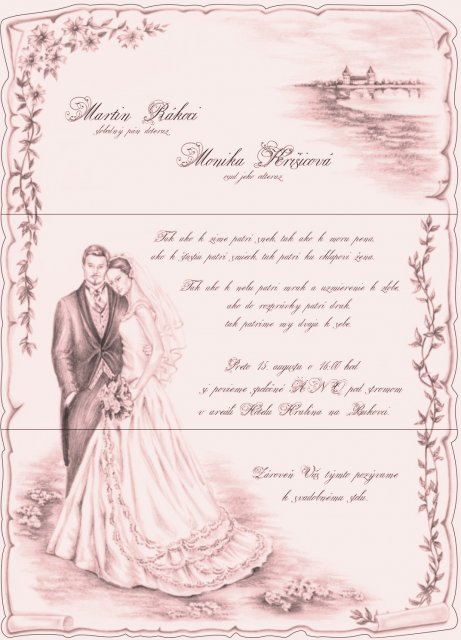 Martin Rákoci
slobodný pán doteraz
Monika Križicová

Tak ako k zime patrí sneh, tak ako k moru pena,
ako k šťastiu patrí smiech, tak patrí ku chlapovi žena.
Tak ako k nebu patrí mrak a uzmierenie k zlobe,
ako do rozprávky patrí drak,
tak patríme my dvaja k sebe.
Preto 15. augusta o 16.00 hod
si povieme spoločné ÁNO pod stromom
v areáli Hotela Hrabina na Bukovci.
Zároveň Vás týmto pozývame
k svadobnému stolu.